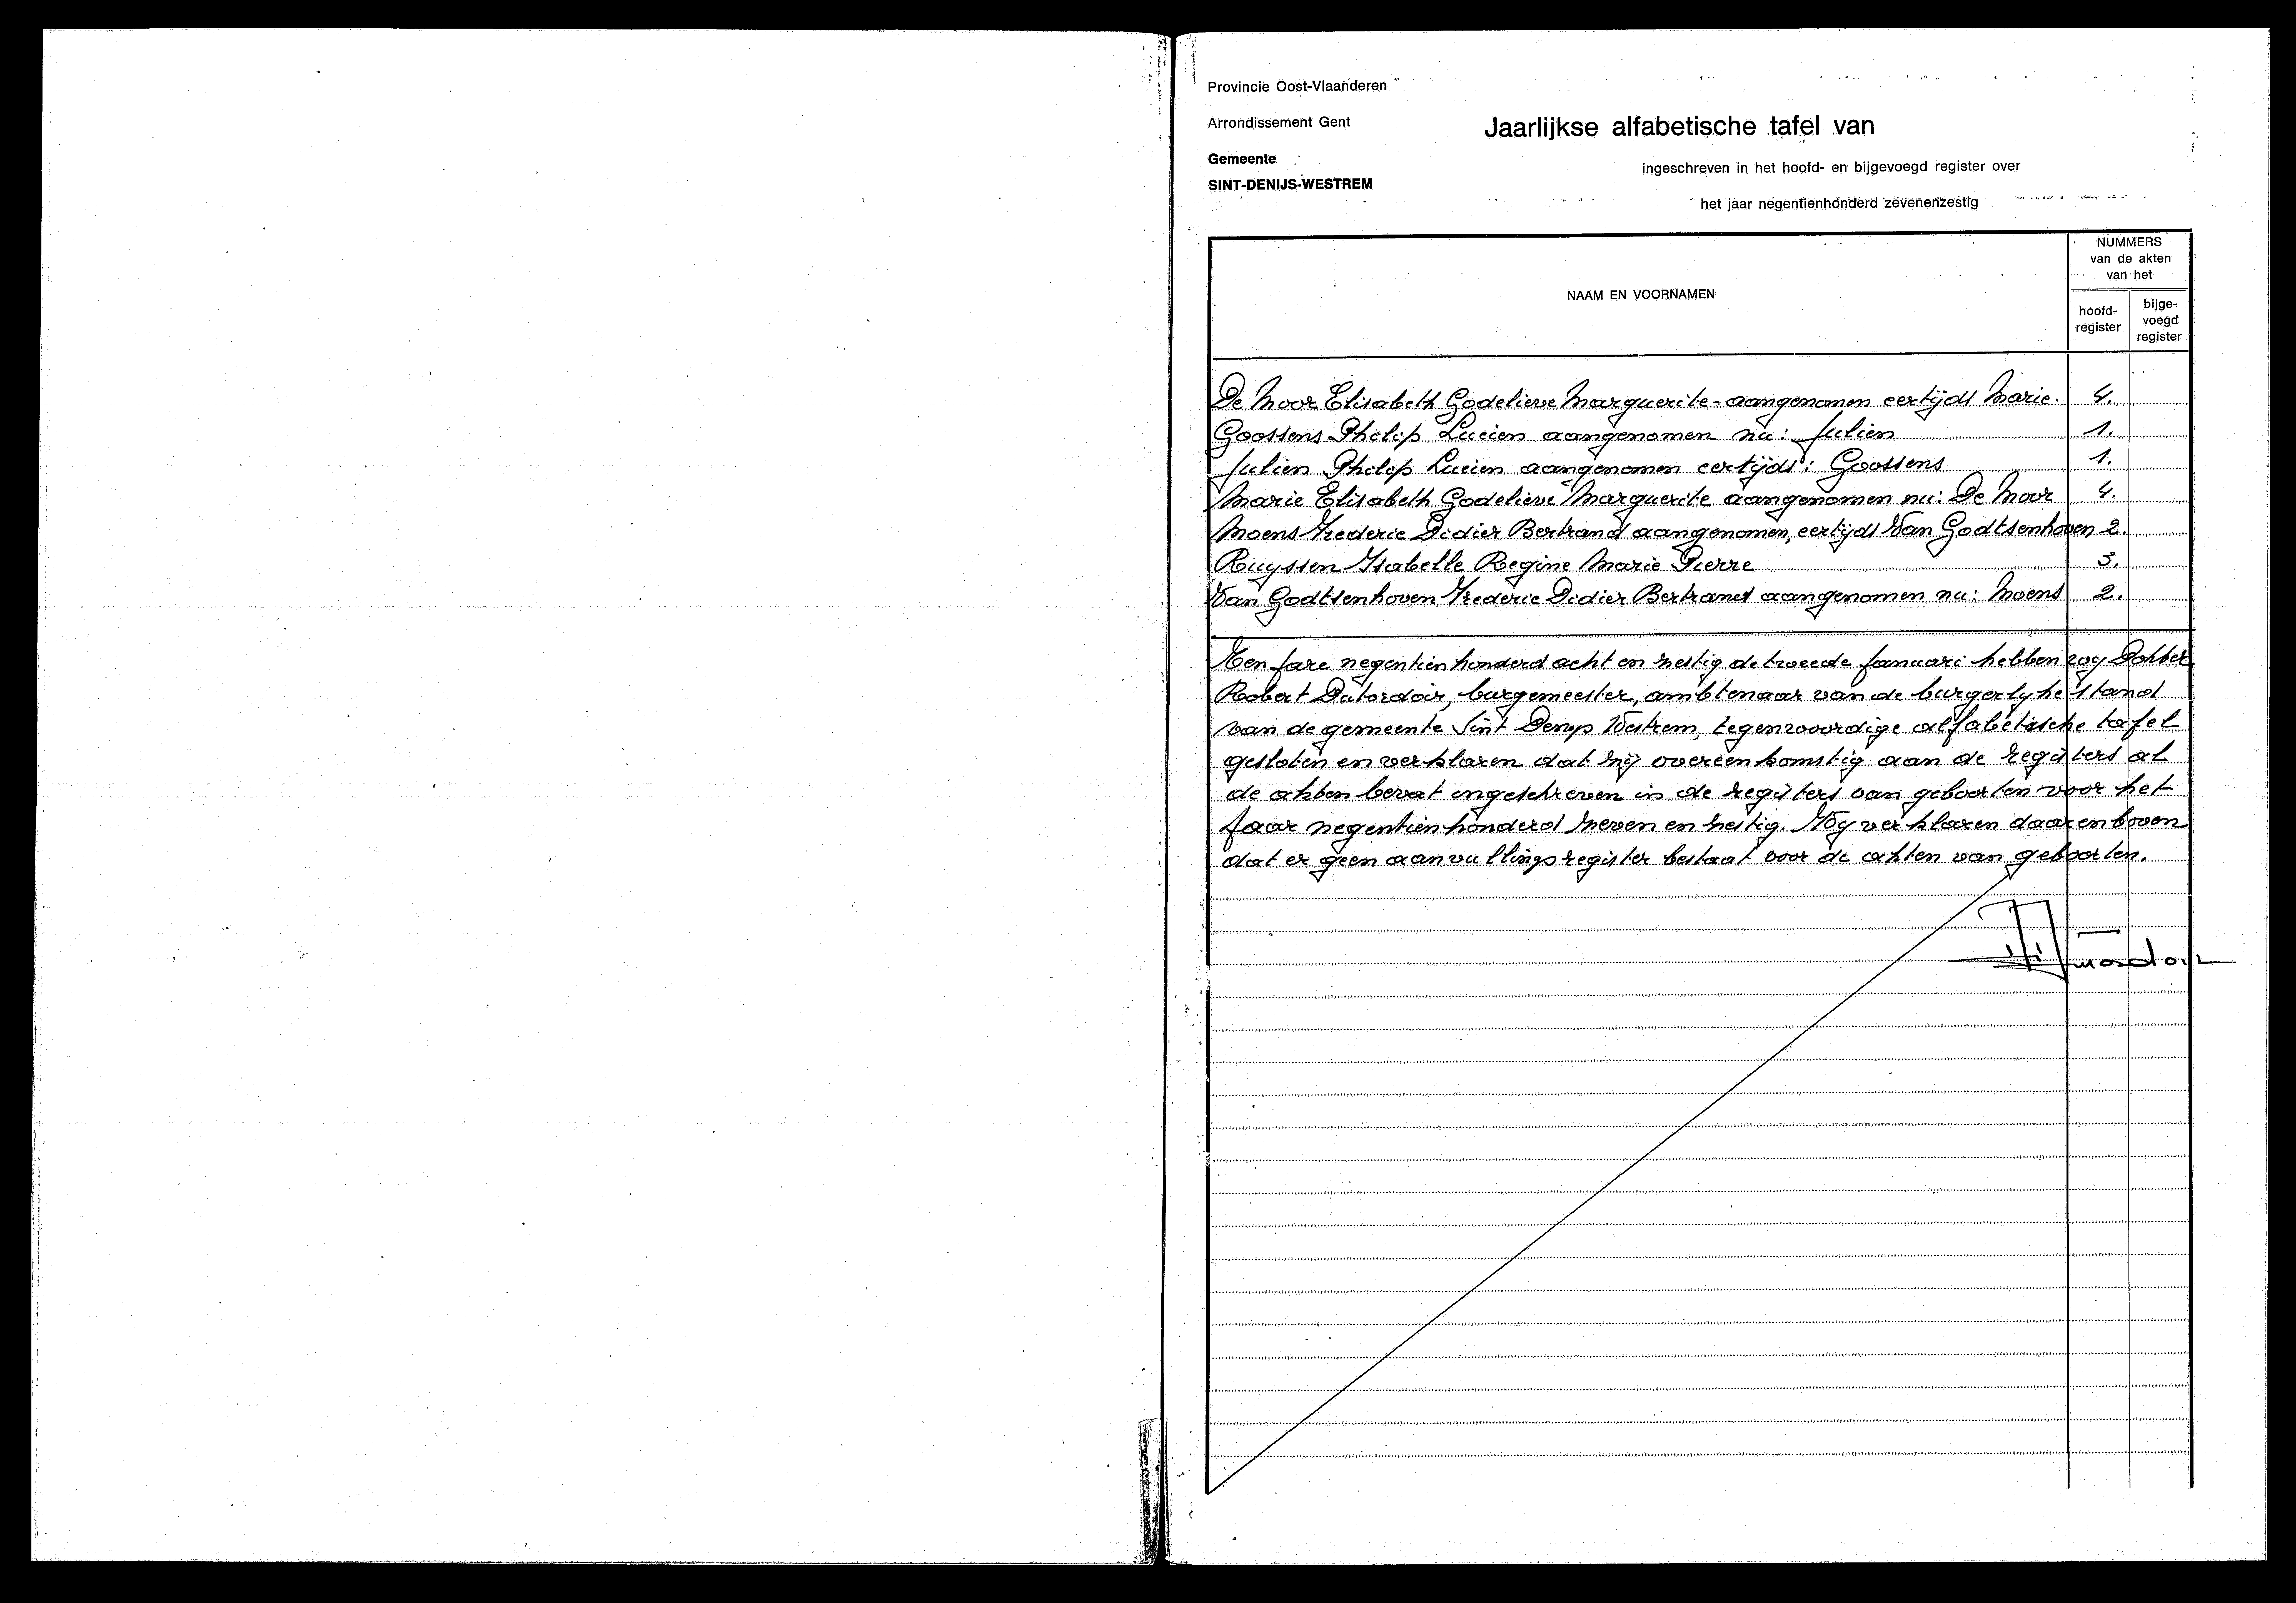 Provincie Oost-Vlaanderen
Arrondissement Gent
Gemeente
SINT-DENIJS-WESTREM
Jaarlijkse alfabetische tafel van
ingeschreven in het hoofd- en bijgevoegd register over
het jaar negentienhonderd zevenenzestig
NAAM EN VOORNAMEN
NUMMERS
van de akten
van het
hoofd-
register
bijge-
voegd
register
De Moor Elisabeth Godelieve Marguerite - aangenomen eertijds Marie. 4.
Goossens Philip Lucien aangenomen nu: Julien 1.
Julien Philip Lucien aangenomen eertijds: Goossens 1.
Marie Elisabeth Godelieve Marguerite aangenomen nu: De Moor 4.
Moens Frederic Didier Bertrand aangenomen, eertijds Van Godtsenhoven 2.
Ruyssen Isabelle Regine Marie Pierre 3.
Van Godtsenhoven Frederic Didier Bertrand aangenomen nu: Moens 2.
Ten jare negentien honderd acht en zestig de tweede januari hebben wy Dokter
Robert Dutordoir, burgemeester, ambtenaar van de burgerlyke stand
van de gemeente Sint Denys Westrem, tegenwoordige alfabetische tafel
gesloten en verklaren dat zij overeenkomstig aan de registers al
de akten bevat ingeschreven in de registers van geboorten voor het
jaar negentienhonderd zeven en zestig. Wy verklaren daarenboven
dat er geen aanvullingsregister bestaat voor de akten van geboorten.